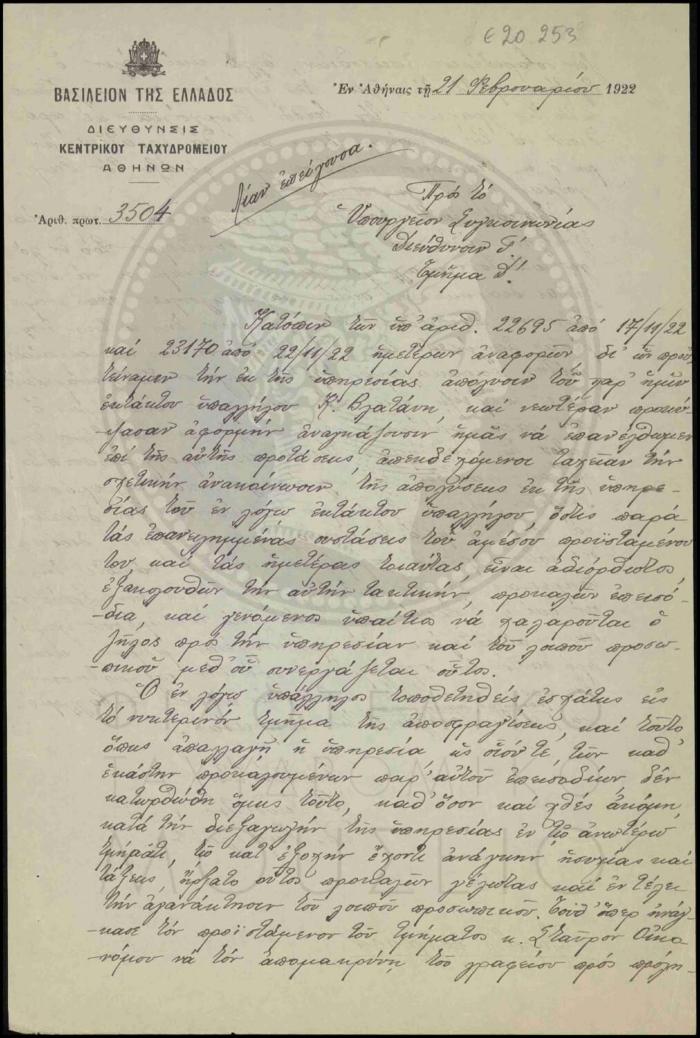 ε20 253
ΒΑΣΙΛΕΙΟΝ ΤΗΣ ΕΛΛΑΔΟΣ
ΔΙΕΥΘΥΝΣΙΣ
ΚΕΝΤΡΙΚΟΥ ΤΑΧΥΔΡΟΜΕΙΟΥ
ΑΘΗΝΩΝ
Ἐν Ἀθήναις τῇ 21 Φεβρουαρίου 1922
Ἀριθ. πρωτ. 3504
Λίαν ἐπείγουσα.
Πρὸς τὸ
Ὑπουργεῖον Συγκοινωνίας
Διεύθυνσιν Γ'
Τμῆμα Δ'.
Κατόπιν τῶν ὑπ' ἀριθ. 22695 ἀπὸ 17/11/22
καὶ 23170 ἀπὸ 22/11/22 ἡμετέρων ἀναφορῶν, δι' ὧν προὐ-
τείναμεν τὴν ἐκ τῆς ὑπηρεσίας ἀπόλυσιν τοῦ παρ' ἡμῖν
ἐκτάκτου ὑπαλλήλου Κ. Βλατάνη, καὶ νεωτέραν προκύ-
ψασαν ἀφορμὴν ἀναγκάζουσιν ἡμᾶς νὰ ἐπανέλθωμεν
ἐπὶ τῆς αὐτῆς προτάσεως, ἀπεκδεχόμενοι ταχεῖαν τὴν
σχετικὴν ἀνακοίνωσιν τῆς ἀπολύσεως ἐκ τῆς ὑπηρε-
σίας τοῦ ἐν λόγῳ ἐκτάκτου ὑπαλλήλου, ὅστις παρὰ
τὰς ἐπανειλημμένας συστάσεις τοῦ ἀμέσου προϊσταμένου
του καὶ τὰς ἡμετέρας τοιαύτας, εἶναι ἀδιόρθωτος,
ἐξακολουθῶν τὴν αὐτὴν τακτικήν, προκαλῶν ἐπεισό-
δια, καὶ γενόμενος ὑπαίτιος νὰ χαλαροῦται ὁ
ζῆλος πρὸς τὴν ὑπηρεσίαν καὶ τοῦ λοιποῦ προσω-
πικοῦ μεθ' οὗ συνεργάζεται οὗτος.
Ὁ ἐν λόγῳ ὑπάλληλος τοποθετηθεὶς ἐσχάτως εἰς
τὸ νυκτερινὸν τμῆμα τῆς ἀποσφραγίσεως, καὶ τοῦτο
ὅπως ἀπαλλαγῇ ἡ ὑπηρεσία, ὡς οἷόν τε, τῶν καθ'
ἑκάστην προκαλουμένων παρ' αὐτοῦ ἐπεισοδίων, δὲν
κατωρθώθη ὅμως τοῦτο, καθ' ὅσον καὶ χθὲς ἀκόμη,
κατὰ τὴν διεξαγωγὴν τῆς ὑπηρεσίας ἐν τῷ ἀνωτέρω
τμήματι, τῷ κατ' ἐξοχὴν ἔχοντι ἀνάγκην ἡσυχίας καὶ
τάξεως, ἤρξατο οὗτος προκαλῶν γέλωτας καὶ ἐν τέλει
τὴν ἀγανάκτησιν τοῦ λοιποῦ προσωπικοῦ. Τοῦθ' ὅπερ ἠνάγ-
κασε τὸν προϊστάμενον τοῦ τμήματος κ. Σταῦρον Οἰκο-
νόμου νὰ τὸν ἀπομακρύνῃ τοῦ γραφείου πρὸς πρόλη-